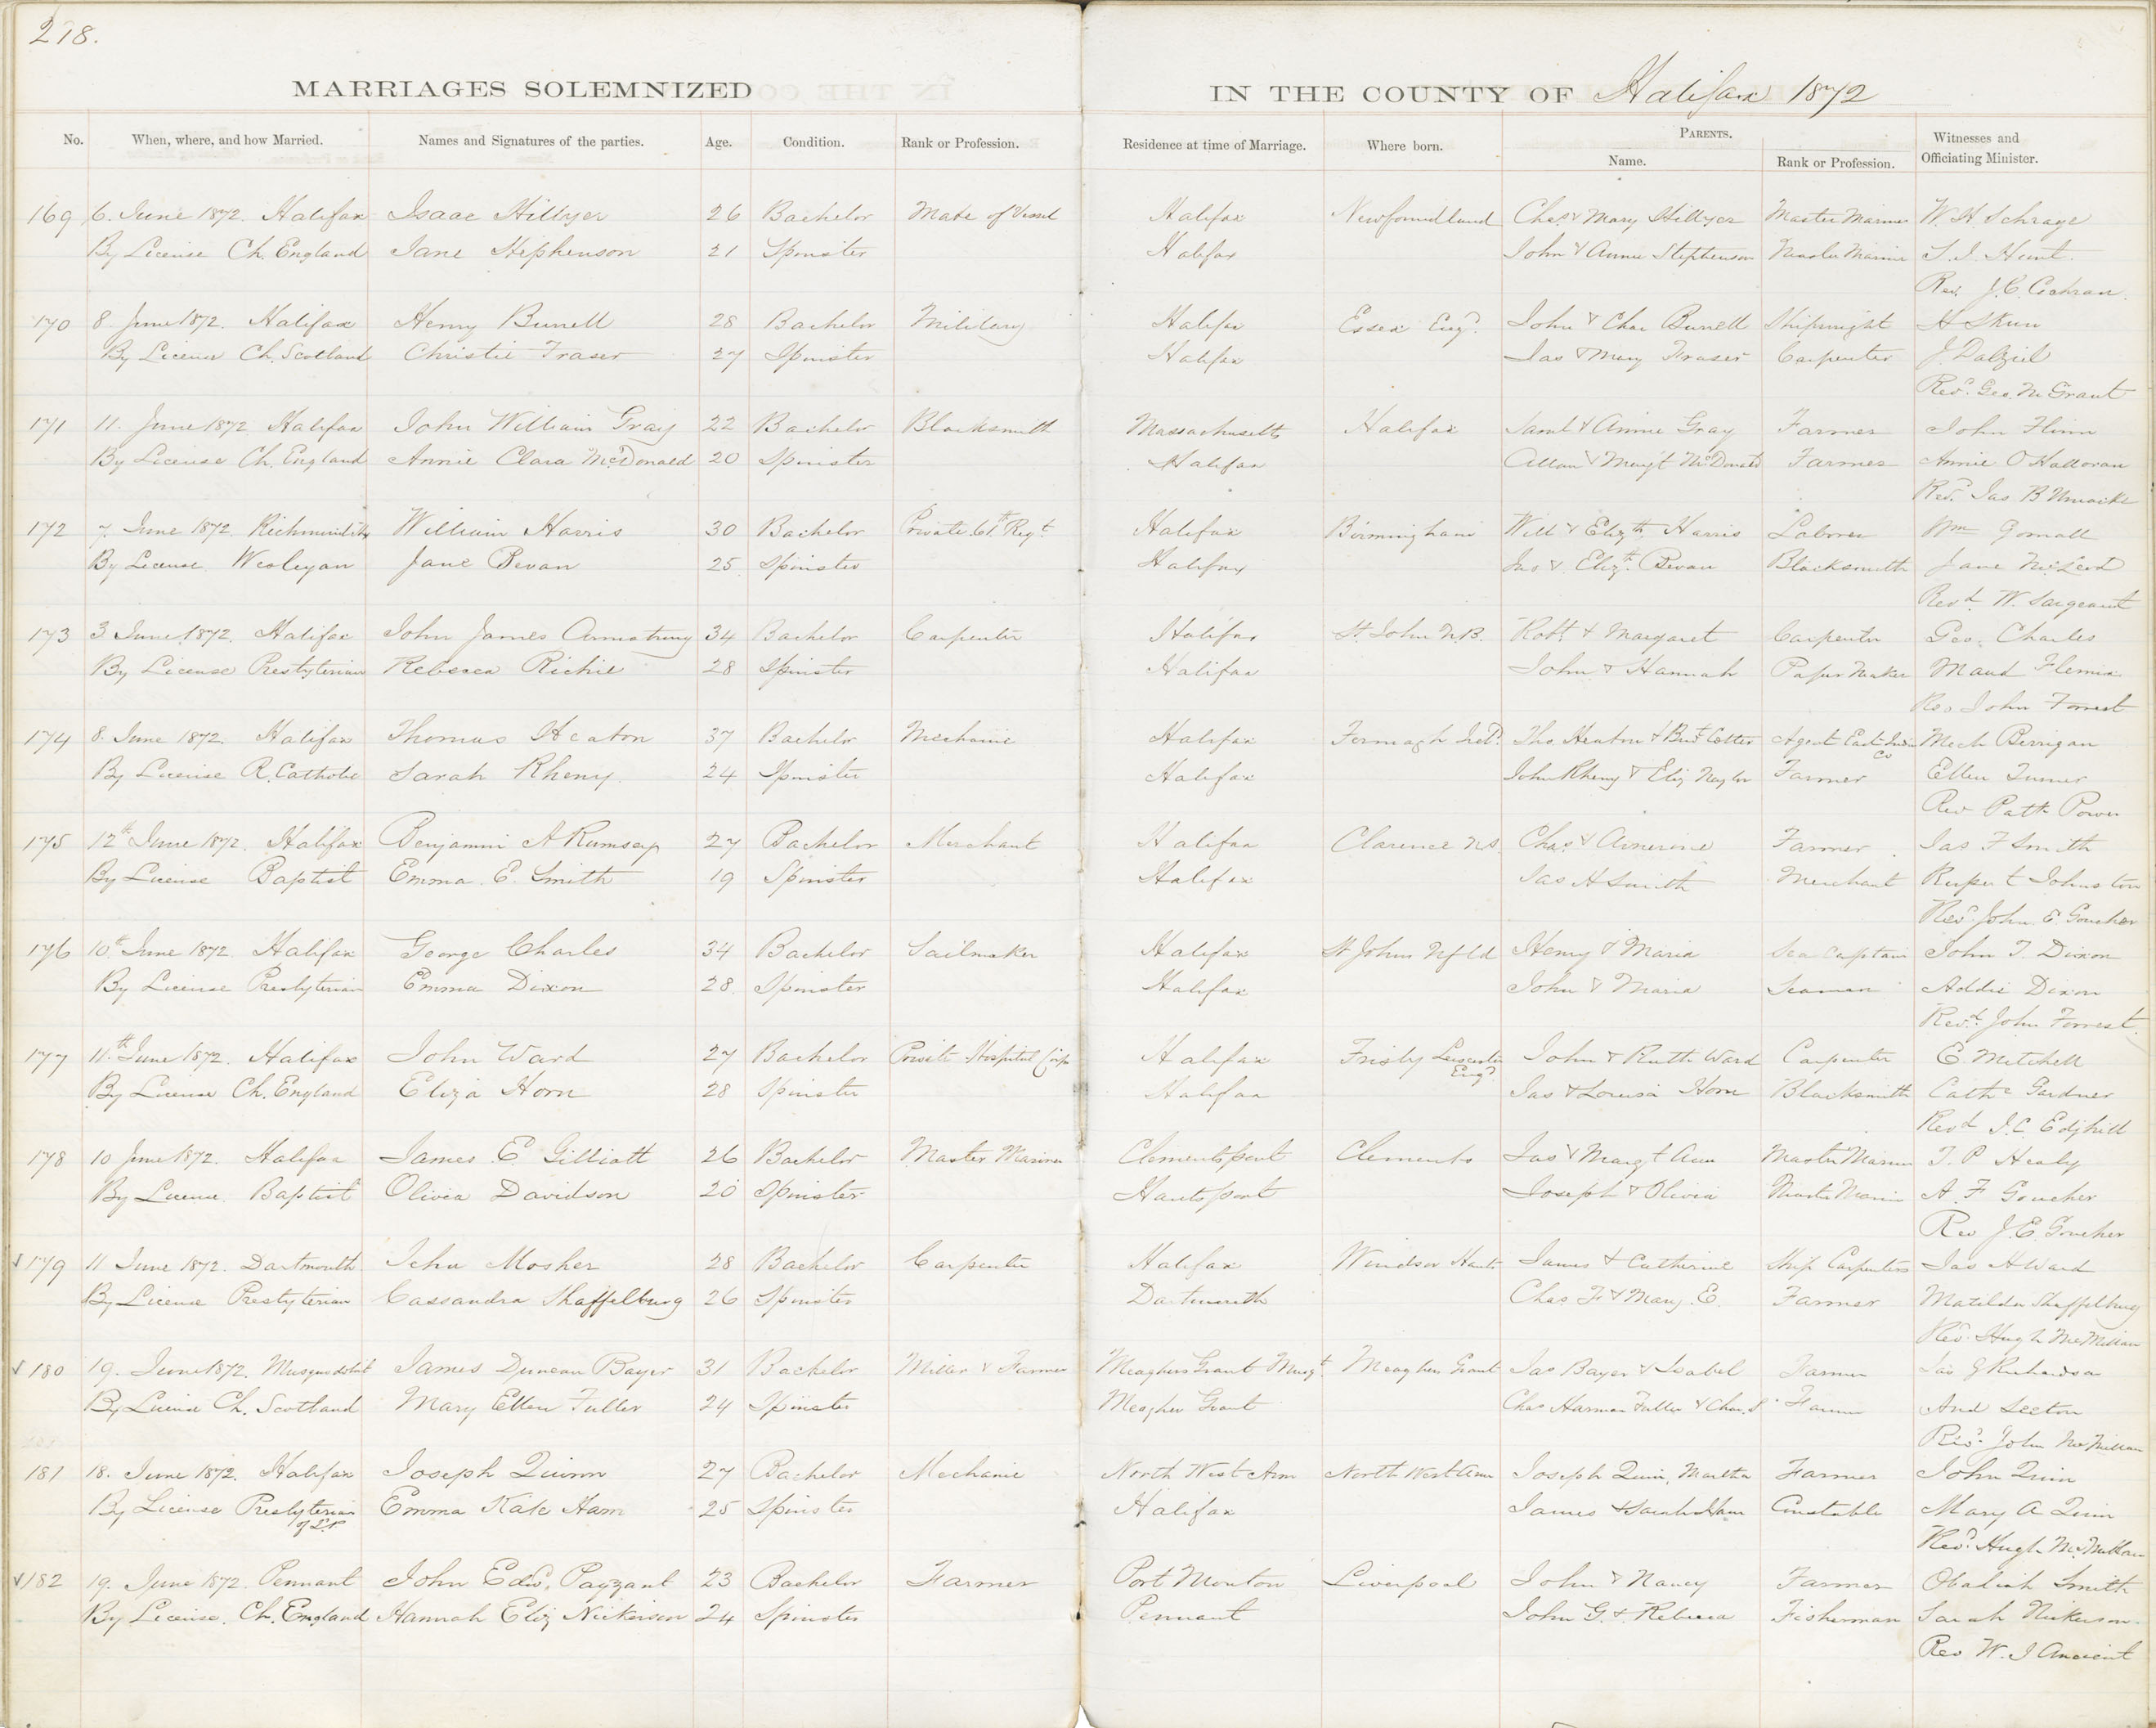 218.
MARRIAGES SOLEMNIZED IN THE COUNTY OF Halifax 1872
No. When, where, and how Married. Names and Signatures of the parties. Age. Condition. Rank or Profession. Residence at time of Marriage. Where born. PARENTS. Name. Rank or Profession. Witnesses and Officiating Minister.
169 6. June 1872. Halifax Isaac Hillyer 26 Bachelor Mate of Vessel Halifax Newfoundland Chas & Mary Hillyer Master Mariner W. H. Schrage
By License Ch. England Jane Stephenson 21 Spinster Halifax John & Annie Stephenson Master Marine T. J. Hunt.
Rev. J. C. Cochran.
170 8. June 1872. Halifax Henry Burrell 28 Bachelor Military Halifax Essex Engd. John & Char Burrell Shipwright H Skun
By License Ch. Scotland Christie Fraser 27 Spinster Halifax Jas & Mary Fraser Carpenter J. Dalziel
Revd. Geo. M Grant
171 11. June 1872 Halifax John William Gray 22 Bachelor Blacksmith Massachusetts Halifax Saml & Annie Gray Farmer John Flinn
By License Ch. England Annie Clara McDonald 20 Spinster Halifax Allan & Margt McDonald Farmer Annie O'Halloran
Revd. Jas B Uniacke
172 7. June 1872. William Harris 30 Bachelor Private 61st Regt. Halifax Birmingham Will & Elizth. Harris Laborer Wm Gornall
By License Wesleyan Jane Bevan 25 Spinster Halifax Jas & Elizth. Bevan Blacksmith Jane McLeod
Revd. W. Sargeant
173 3 June 1872. Halifax John James Armstrong 34 Bachelor Carpenter Halifax St. John N.B. Robt. & Margaret Carpenter Geo. Charles
By License Presbyterian Rebecca Richie 28 Spinster Halifax John & Hannah Paper Maker Maud Flemin
Rev John Forrest
174 8. June 1872. Halifax Thomas Heaton 37 Bachelor Mechanic Halifax Fermagh Ired. Tho. Heaton & Bridt Cotter Agent East India Co Mich Berrigan
By License R. Catholic Sarah Rheny. 24 Spinster Halifax John Rheny & Eliz Naylor Farmer Ellen Turner
Rev Patk Power
175 12th June 1872. Halifax Benjamin A Rumsey 27 Bachelor Merchant Halifax Clarence NS Chas & Armenine Farmer Jas F Smith
By License Baptist Emma. E. Smith 19 Spinster Halifax Jas H Smith Merchant Rupert Johnston
Revd. John E Goucher
176 10th June 1872. Halifax George Charles 34 Bachelor Sailmaker Halifax St Johns Nfld Henry & Maria Sea Captain John T. Dixon
By License Presbyterian Emma Dixon 28. Spinster Halifax John & Maria Seaman Addie Dixon
Revd. John Forrest.
177 11th. June 1872. Halifax John Ward 27 Bachelor Private Hospital Corps Halifax Frisby Leicester Engd John & Ruth Ward Carpenter E. Mitchell
By License Ch. England Eliza Horn 28 Spinster Halifax Jas & Louisa Horn Blacksmith Cathe Gardner
Revd J. C. Edghill
178 10 June 1872. Halifax James E Gilliatt 26 Bachelor Master Mariner Clementsport Clements Jas & Margt Ann Master Mariner T. P Healy
By License Baptist Olivia Davidson 20 Spinster Hantsport Joseph & Olivia Master Marine A. F Goucher
Rev J. E. Goucher
√ 179 11 June 1872. Dartmouth John Mosher 28 Bachelor Carpenter Halifax Windsor Hants James & Catherine Ship Carpenter Jas H Ward
By License Presbyterian Cassandra Shaffelburg 26 Spinster Dartmouth Chas F. & Mary. E. Farmer Matilda Shaffelburg
Revd. Hugh McMillan
√ 180 19. June 1872. Musquodobit James Duncan Bayer 31 Bachelor Miller & Farmer Meaghers Grant Musqt. Meaghers Grant Jas Bayer & Isabel Farmer Jas G Richardson
By License Ch. Scotland Mary Ellen Fuller 24 Spinster Meagher Grant Chas Harman Fuller & Char. S Farmer And Seeton
Revd. John McMillan
181 18. June 1872. Halifax Joseph Quinn 27 Bachelor Mechanic North West Arm North West Arm Joseph Quin, Martha Farmer John Quin
By License Presbyterian of L.P Emma Kate Ham 25 Spinster Halifax James & Sarah Ham Constable Mary A Quin
Revd. Hugh McMillan
√ 182 19. June 1872. Pennant John Edwd. Payzant 23 Bachelor Farmer Port Mouton Liverpool John & Nancy Farmer Obadiah Smith
By License. Ch. England Hannah Eliz Nickerson 24 Spinster Pennant John G. & Rebecca Fisherman Sarah Nickerson
Rev W. J Ancient